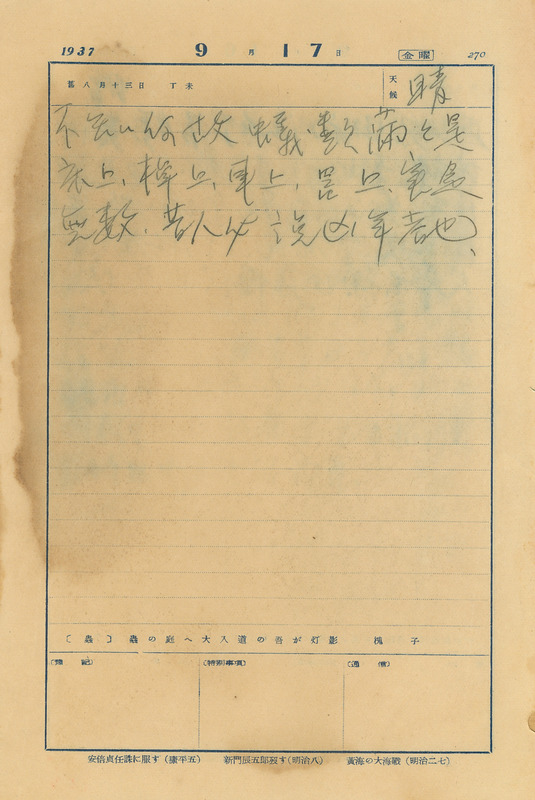 1937 9月17日 金曜 270
舊八月十三日 丁未 天候 晴
不知何故 蟻類滿々是
床上、棹上、車上、器上、
無數、昔人 說凶年者也、
〔蟲〕 蟲の庭へ大入道の吾が灯影 槐子
(豫記) (特別事項) (通信)
安倍貞任誅に服す(康平五) 新門辰五郎歿す(明治八) 黃海の大海戰(明治二七)